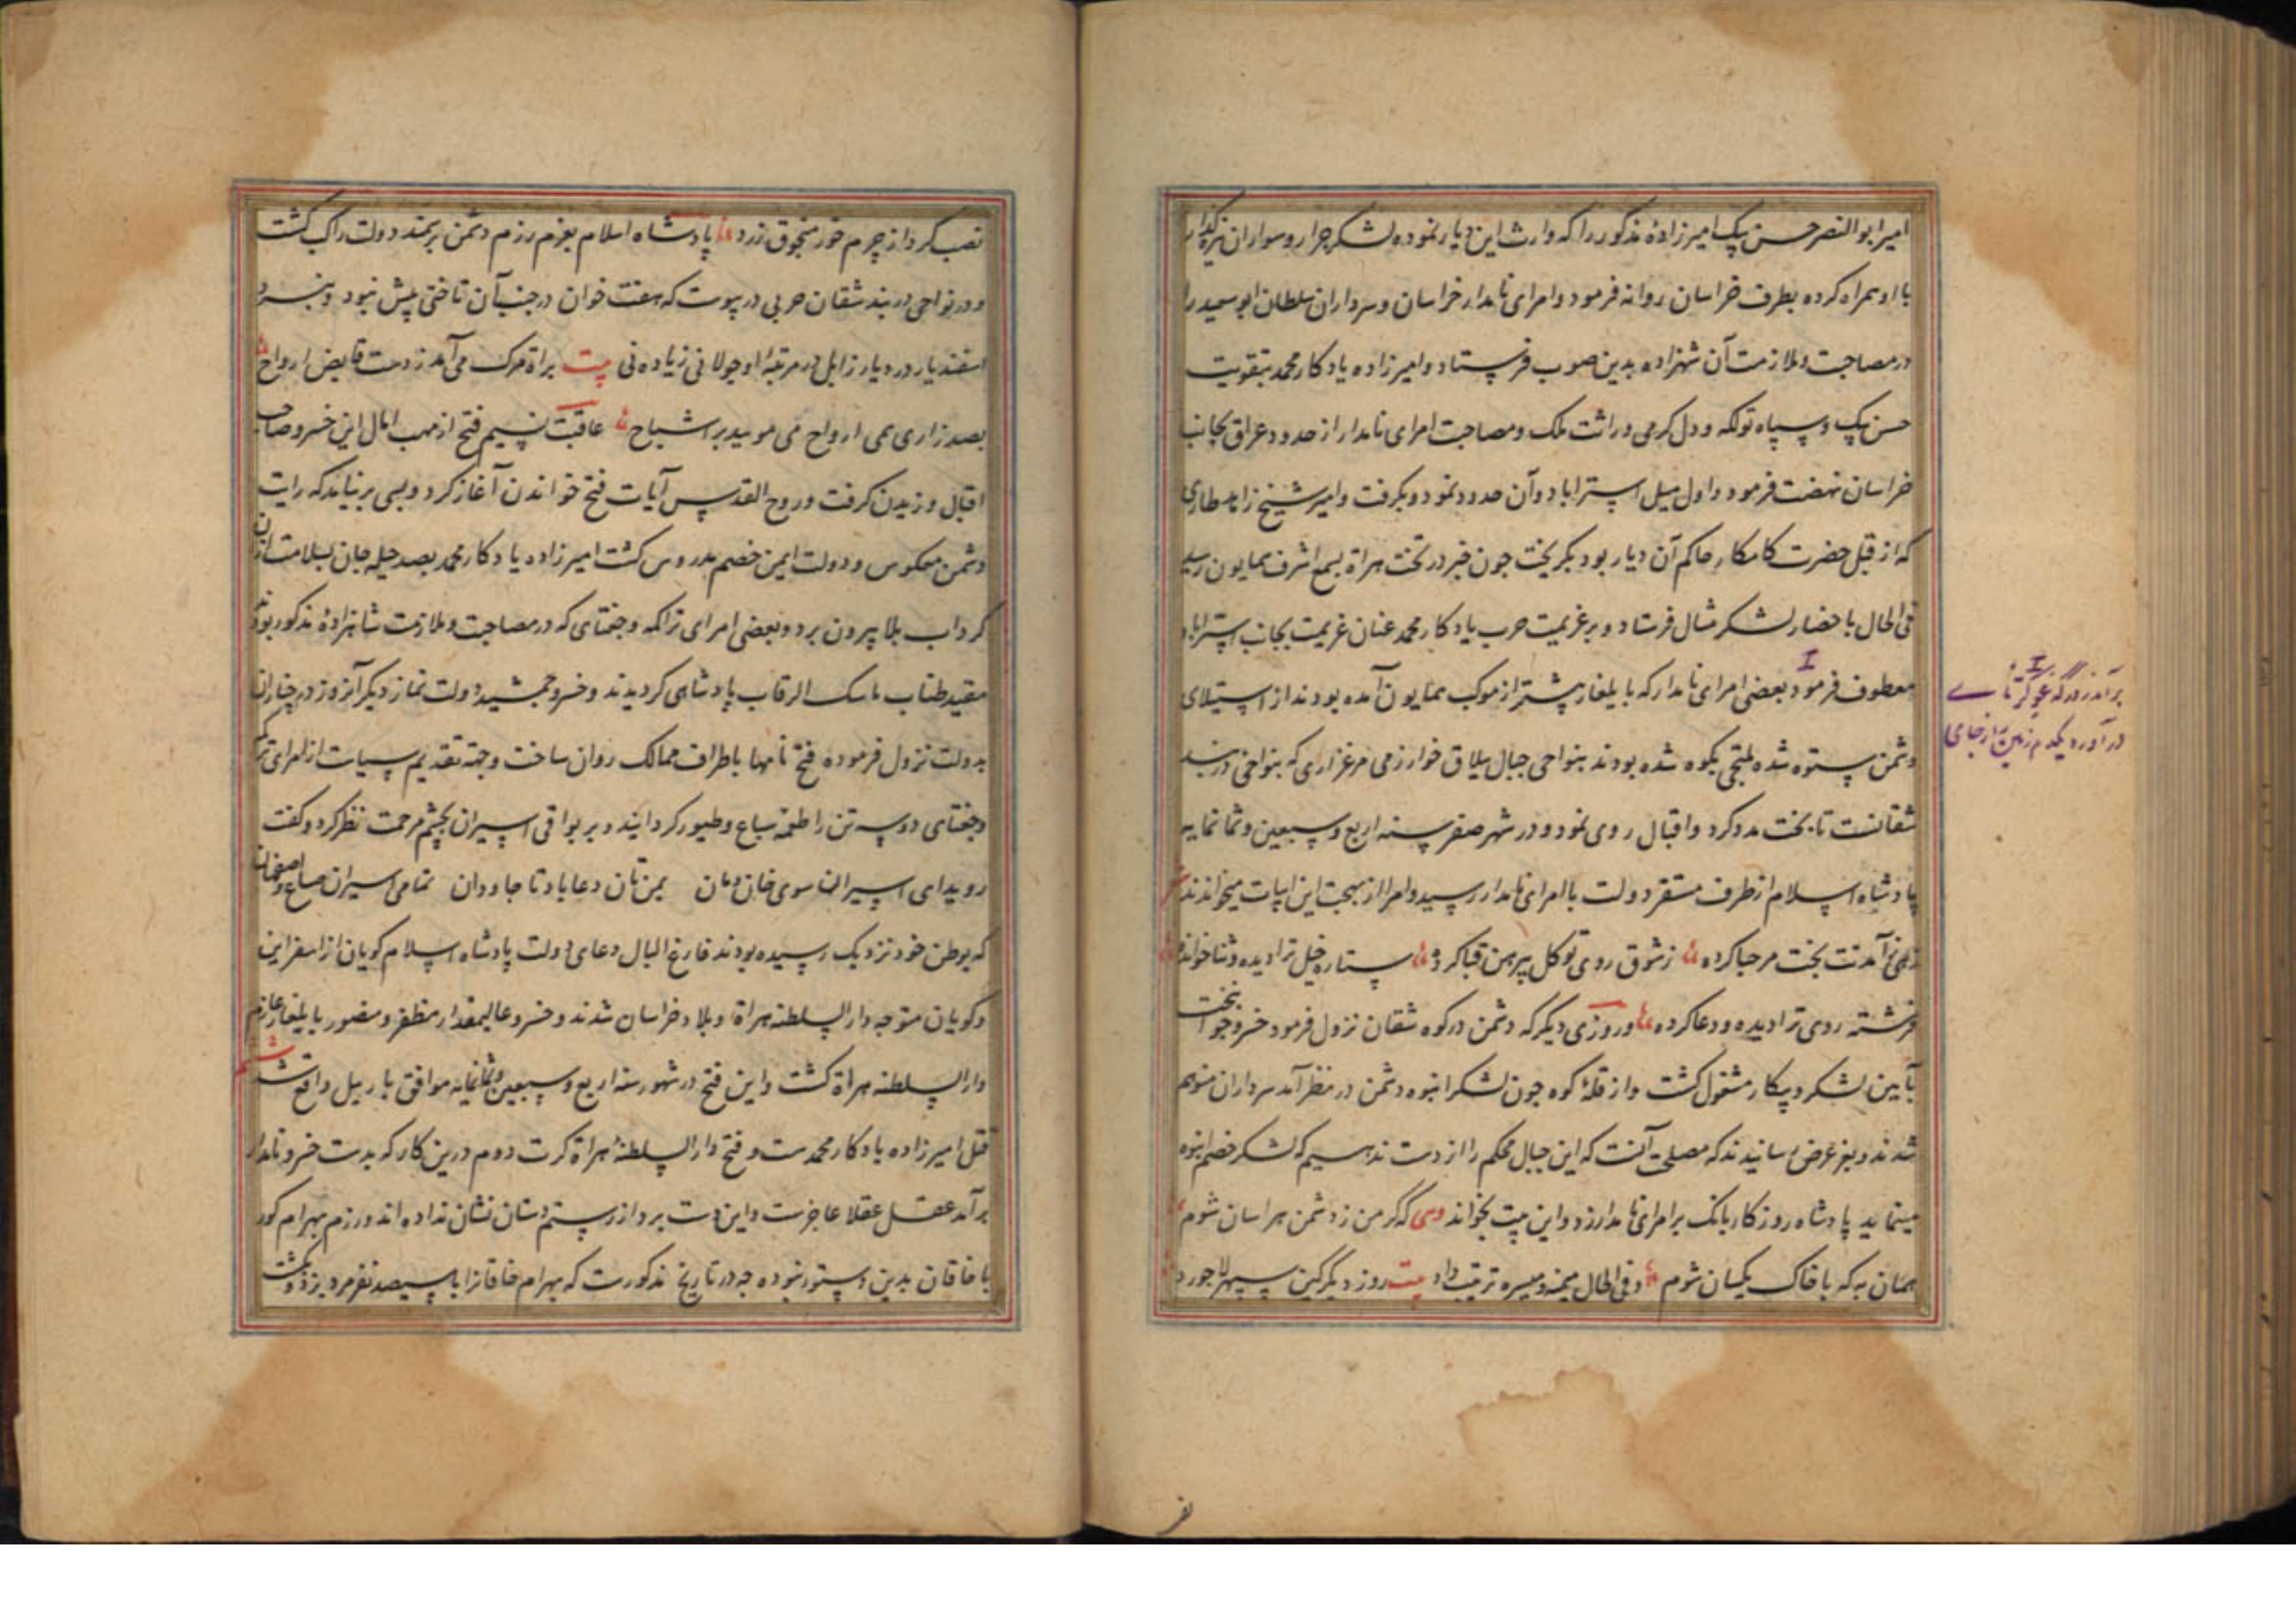 امیر ابو النصر حسن بیک امیرزادهٔ مذکور را که وارث این دیار نموده لشکر جرار و سواران نیزه گذار
با او همراه کرده بطرف خراسان روانه فرمود و امرای نامدار خراسان و سرداران سلطان ابو سعید را
در مصاحبت و ملازمت آن شهزاده بدین صوب فرستاد و امیرزاده یادکار محمد بتقویت
حسن بیک و سپاه و دل کرمی وراثت ملک و مصاحبت امرای نامدار از حدود عراق بجانب
خراسان نهضت فرمود و اول میل استراباد و آن حدود نمود و بکرفت و امیر شیخ زاهد طارمی
که از قبل حضرت کامکار حاکم آن دیار بود بکریخت جون خبر در تخت هراة بسمع اشرف همایون رسید
فی الحال باحضار لشکر مثال فرستاد و بر عزیمت حرب یادکار محمد عنان عزیمت بجانب استراباد
معطوف فرمود بعضی امرای نامدار که بایلغار پیشتر از موکب همایون آمده بودند از استیلای
دشمن ستوه شده ملتجی بکوه شده بودند بنواحی جبال ییلاق خوارزمی مرغزاری که بنواحی دربند
شقانست تا بخت مدد کرد و اقبال روی نمود و در شهر صفر سنه اربع و سبعین و ثمانمایه
پادشاه اسلام از طرف مستقر دولت با امرای نامدار رسید و امرا از بهجت این ابیات میخواندند شعر
زهی بر آمدنت بخت مرحبا کرده زشوق روی تو کل پیرهن قبا کرده ستاره خیل ترا دیده و ثنا خوانده
فرشته روی ترا دیده و دعا کرده و روزی دیگر که دشمن در کوه شقان نزول فرمود خسرو جوانبخت
بآیین لشکر و پیکار مشغول کشت و از قلهٔ کوه جون لشکر انبوه دشمن در نظر آمد سرداران متوهم
شدند و بعز عرض رسانیدند که مصلحت آنست که این جبال محکم را از دست ندهیم که لشکر خصم انبوه
مینماید پادشاه روزکار بانک بر امرای نامدار زد و این بیت بخواند که کر من ز دشمن هراسان شوم
همان به که با خاک یکسان شوم و فی الحال میمنه و میسره ترتیب داد بیت روز دیگر کین سپهر لاجورد
بر آمد
در آورد یکدم زمین را ز جای
نصب کرد از جرم خور منجوق زرد پادشاه اسلام بعزم رزم دشمن بر سمند دولت راکب کشت
و در نواحی دربند شقان حربی در پیوست که هفت خوان در جنب آن تاختی پیش نبود و نبرد
اسفندیار در دیار زابل در مرتبهٔ او جولانی زیاده نی بیت براة مرک می آمد ز دست قابض ارواح
بصد زاری همی ارواح می مویید بر اشباح عاقبت نسیم فتح از مهب امال این خسرو صاحب
اقبال وزیدن کرفت و روح القدس آیات فتح خواندن آغاز کرد و بسی بر نیامد که رایت
دشمن معکوس و دولت ایمن خصم مدروس کشت امیرزاده یادکار محمد بصد حیله جان بسلامت ازان
کرداب بلا بیرون برد و بعضی امرای تراکمه و جغتای که در مصاحبت و ملازمت شاهزادهٔ مذکور بودند
مقید طناب مالک الرقاب پادشاهی کردیدند و خسرو جمشید دولت نماز دیگر آنروز در چناران
بدولت نزول فرموده فتح نامها باطراف ممالک روان ساخت و جهة تقدیم سیاست از امرای ترکمان
و جغتای دو سه تن را طعمهٔ سباع و طیور کردانید و بر بواقی اسیران بچشم مرحمت نظر کرد و کفت
روید ای اسیران سوی خان و مان یمن تان دعا باد تا جاودان تمامی اسیران
که بوطن خود نزدیک رسیده بودند فارغ البال دعای دولت پادشاه اسلام کویان از اسفراین
و کویان متوجه دار السلطنه هراة و بلاد خراسان شدند و خسرو عالیمقدار مظفر و منصور بایلغار عازم
دار السلطنه هراة کشت و این فتح در شهور سنه اربع و سبعین و ثمانمایه موافق بارس ییل واقع شد
قتل امیرزاده یادکار محمدست و فتح دار السلطنهٔ هراة کرت دوم درین کار که بدست خسرو نامدار
بر آمد عقل عقلا عاجزست و این دست برد از رستم دستان نشان نداده اند و رزم بهرام کور
با خاقان بدین دستور نبوده جه در تاریخ مذکورست که بهرام خاقانرا با سیصد نفر مرد بزد و بکشت
نفر